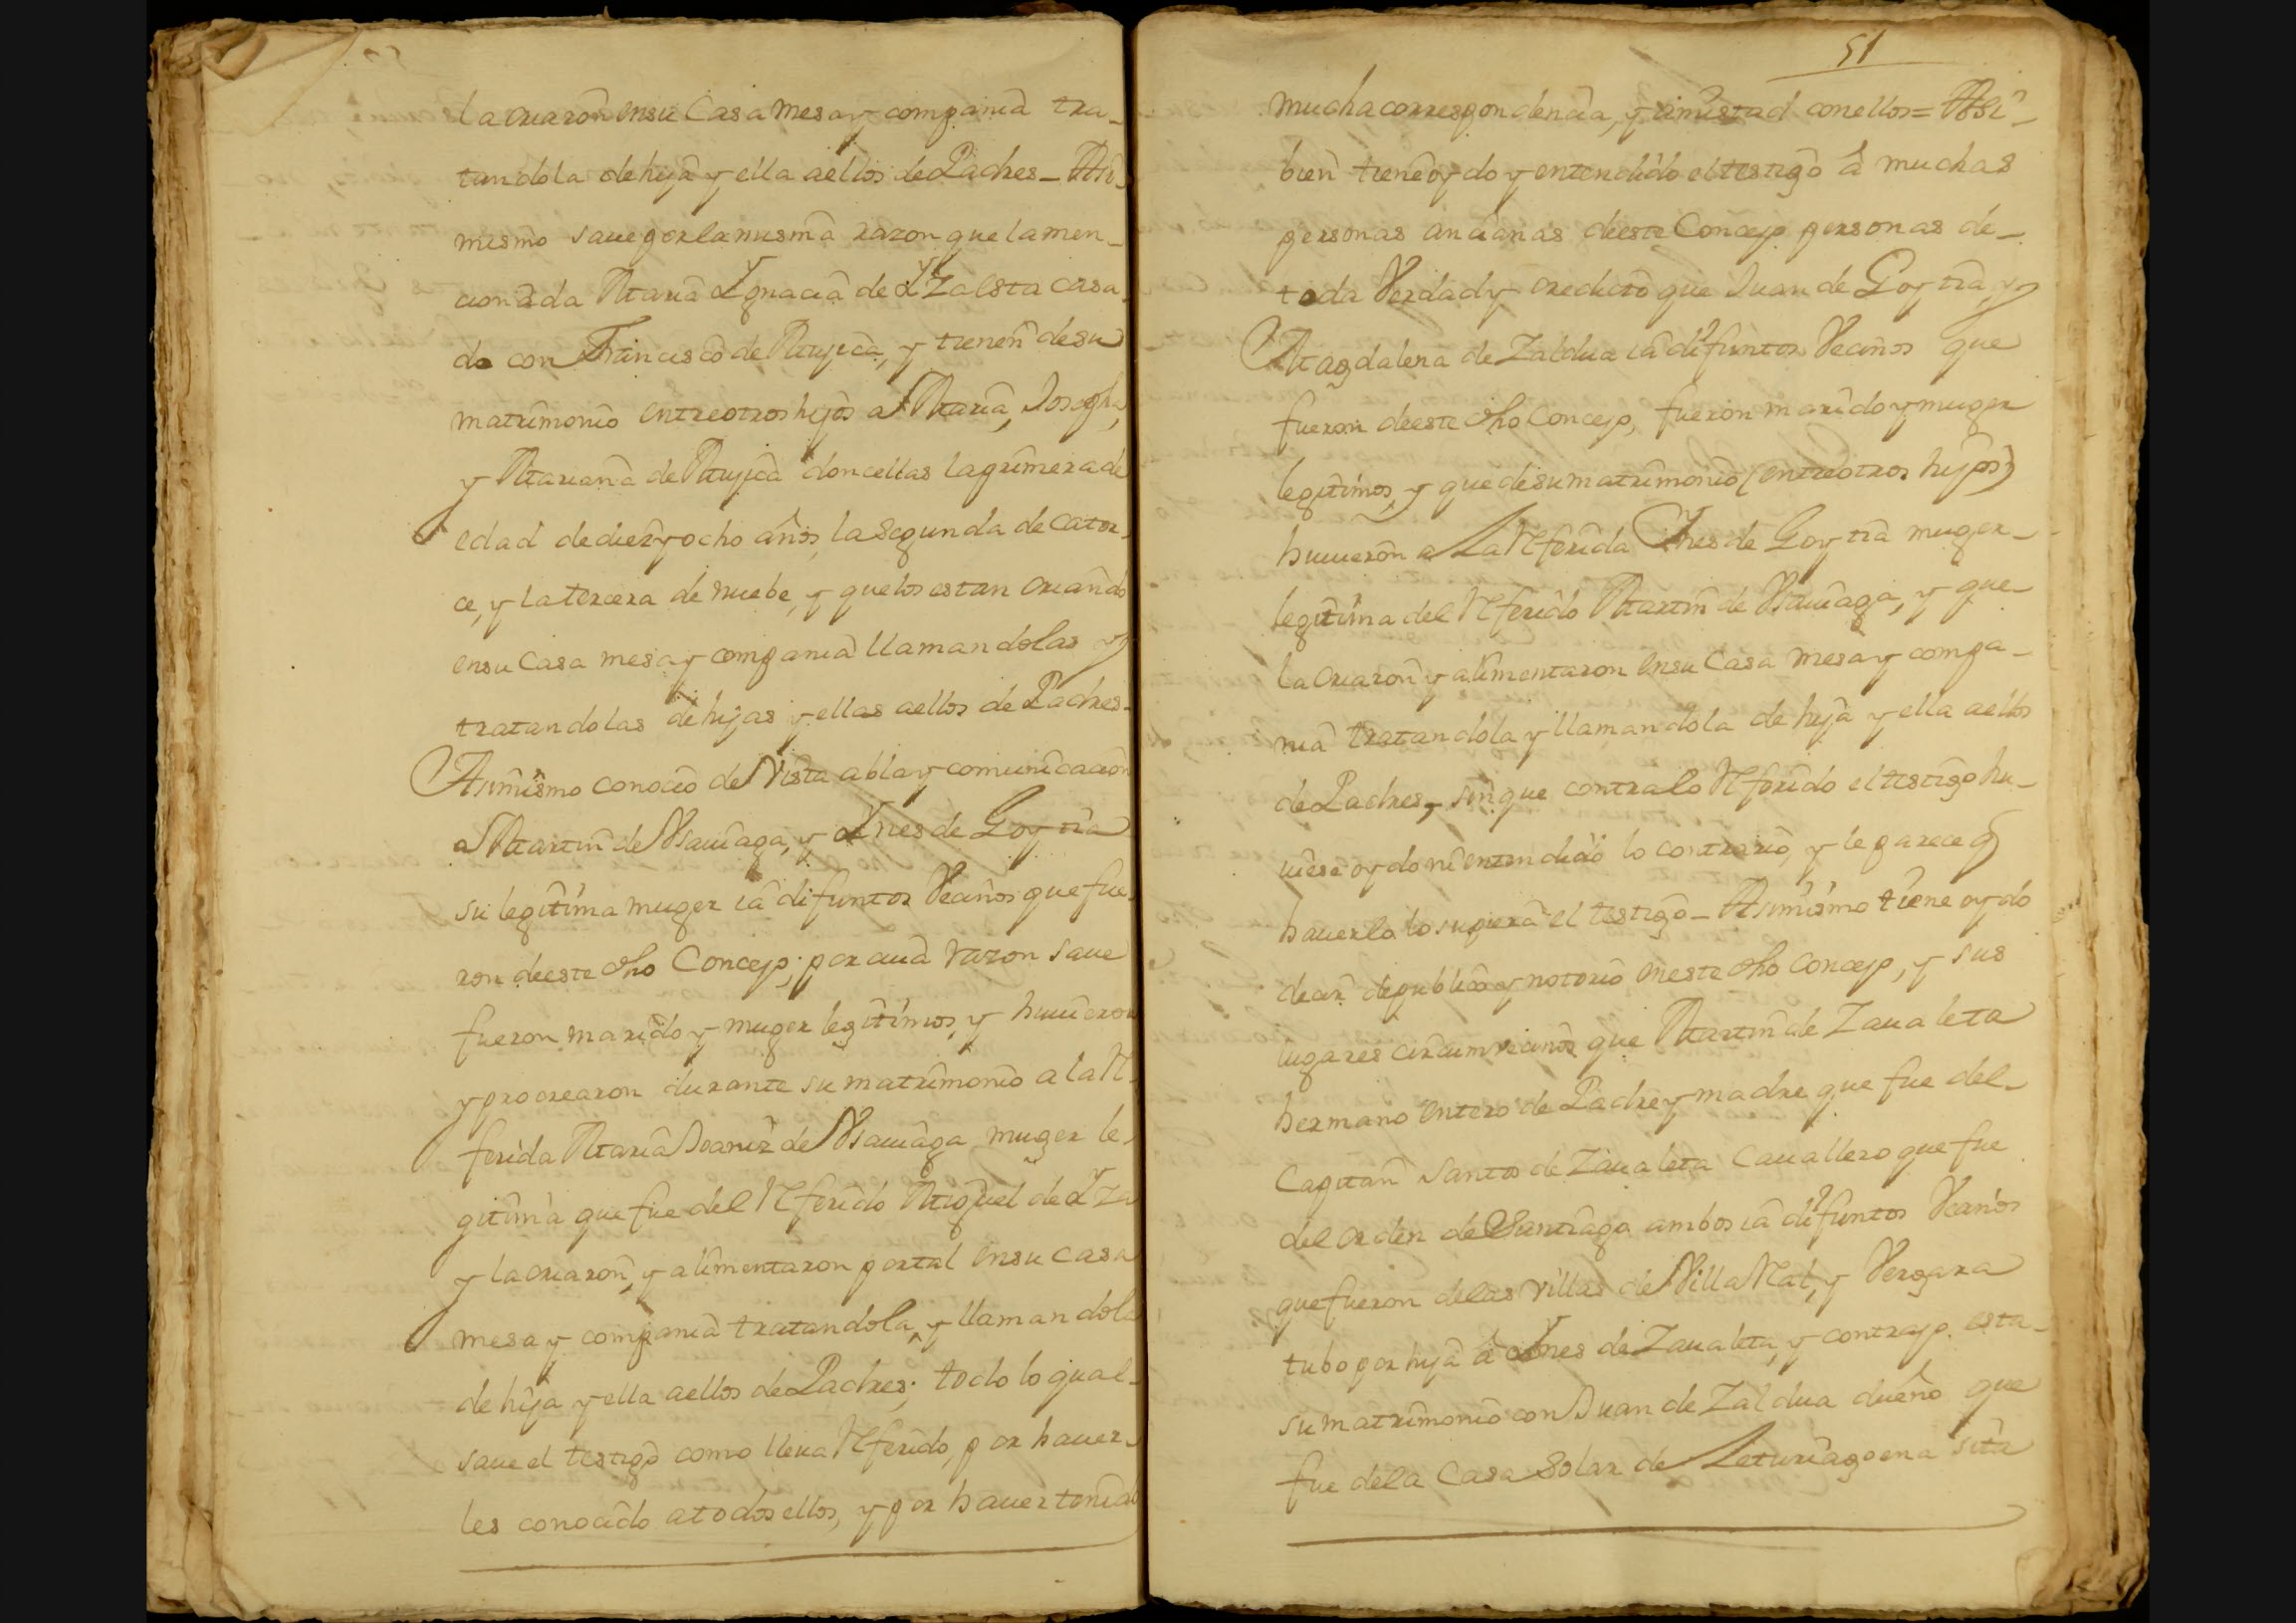 la criaron en su Casa mesa y compania tra-
tandola de hija y ella a ellos de Padres - Asi-
mesmo saue por la misma razon que la men-
cionada Maria Ygnacia de Yza esta casa-
da con Francisco de Mujica, y tienen de su
matrimonio entre otros hijos a Maria, Josepha,
y Mariana de Mujica doncellas la primera de
edad de diez y ocho años, la segunda de cator-
ce, y la tercera de nuebe, y que los estan criando
en su Casa mesa y compania llamandolas y
tratandolas de hijas y ellas a ellos de Padres-
Asimismo conocio de Vista abla y comunicacion
a Martin de Vsauiaga, y Ynes de Goytia
su legitima muger ia difuntos Vecinos que fue-
ron de este dho Concejo; por cuia razon saue
fueron marido y muger legitimos, y huuieron
y procrearon durante su matrimonio a la Re-
ferida Maria Joaniz de Vsauiaga muger le-
gitima que fue del Referido Miguel de Yza
y la criaron, y alimentaron por tal en su casa
mesa y compania tratandola, y llamandola
de hija y ella a ellos de Padres; todo lo qual-
saue el testigo como lleua Referido, por hauer-
les conocido a todos ellos, y por hauer tenido
51
mucha correspondencia, y amistad con ellos = Asi-
bien tiene oydo y entendido el testigo â muchas
personas ancianas de este Concejo personas de-
toda Verdad y credito que Juan de Goytia, y
Magdalena de Zaldua ia difuntos Vecinos que
fueron de este dho Concejo, fueron marido y muger
legitimos, y que de su matrimonio (entre otros hijos)
huuieron a La Referida Ynes de Goytia muger-
legitima del Referido Martin de Vsauiaga, y que-
la criaron y alimentaron en su Casa mesa y compa-
nia tratandola y llamandola de hija y ella a ellos
de Padres, sin que contra lo Referido el testigo hu-
uiese oydo ni entendido lo contrario, y le parece q
hauerlo lo supiera el testigo - Asimismo tiene oydo
decir de publico y notorio en este dho Concejo, y sus
lugares circumvecinos que Martin de Zaualeta
hermano entero de Padre y madre que fue del-
Capitan Santos de Zaualeta Cauallero que fue
del orden de Santiago ambos ia difuntos Vecinos
que fueron de las villas de Villa Real, y Vergara
tubo por hija â Ynes de Zaualeta, y contrajo esta-
su matrimonio con Juan de Zaldua dueño que
fue de la Casa Solar de Leturiagoena sita